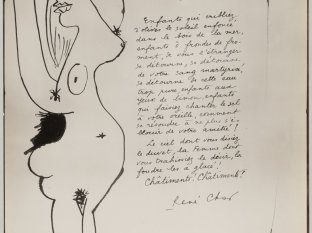 Enfants qui cribliez
d'olives le soleil enfoncé
dans le bois de la mer,
enfants à frondes de fro-
ment, de vous l'étranger
se détourne, se détourne
de votre sang martyrisé,
se détourne de cette eau
trop pure, enfants aux
yeux de limon, enfants
qui faisiez chanter le sel
à votre oreille, comment
se résoudre à ne plus s'é-
blouir de votre amitié ?
Le ciel dont vous disiez
le duvet, la Femme dont
vous trahissiez le désir, la
foudre les a glacés !
Châtiments ! Châtiments !
René Char